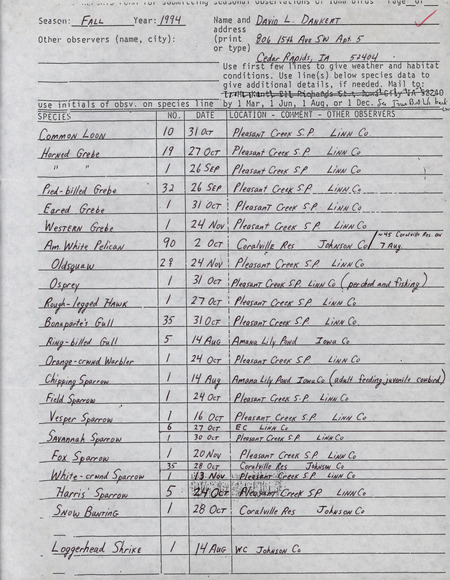 Season: FALL Year: 1994 Name and David L. Dankert
address
Other observers (name, city): (print 806 15th Ave SW Apt. 5
or type)
Cedar Rapids, IA 52404
Use first few lines to give weather and habitat
conditions. Use line(s) below species data to
give additional details, if needed. Mail to:
use initials of obsv. on species line by 1 Mar, 1 Jun, 1 Aug, or 1 Dec.
SPECIES NO. DATE LOCATION - COMMENT - OTHER OBSERVERS
Common Loon 10 31 Oct Pleasant Creek S.P. Linn Co
Horned Grebe 19 27 Oct Pleasant Creek S.P. Linn Co
" " 1 26 Sep Pleasant Creek S.P. Linn Co
Pied-billed Grebe 32 26 Sep Pleasant Creek S.P. Linn Co
Eared Grebe 1 31 Oct Pleasant Creek S.P. Linn Co
Western Grebe 1 24 Nov Pleasant Creek S.P. Linn Co
Am. White Pelican 90 2 Oct Coralville Res Johnson Co / ~45 Coralville Res. on 7 Aug.
Oldsquaw 29 24 Nov Pleasant Creek S.P. Linn Co
Osprey 1 31 Oct Pleasant Creek S.P. Linn Co (perched and fishing)
Rough-legged Hawk 1 27 Oct Pleasant Creek S.P. Linn Co
Bonaparte's Gull 35 31 Oct Pleasant Creek S.P. Linn Co.
Ring-billed Gull 5 14 Aug Amana Lily Pond Iowa Co
Orange-crwnd Warbler 1 24 Oct Pleasant Creek S.P. Linn Co
Chipping Sparrow 1 14 Aug Amana Lily Pond Iowa Co (adult feeding juvenile cowbird)
Field Sparrow 1 24 Oct Pleasant Creek S.P. Linn Co
Vesper Sparrow 1 16 Oct Pleasant Creek S.P. Linn Co
6 27 Oct EC Linn Co
Savannah Sparrow 1 30 Oct Pleasant Creek S.P. Linn Co
Fox Sparrow 1 20 Nov Pleasant Creek S.P. Linn Co
35 28 Oct Coralville Res Johnson Co
White-crwnd Sparrow 1 13 Nov Pleasant Creek S.P. Linn Co
Harris' Sparrow 5 24 Oct Pleasant Creek S.P. Linn Co
Snow Bunting 1 28 Oct Coralville Res Johnson Co
Loggerhead Shrike 1 14 Aug WC Johnson Co